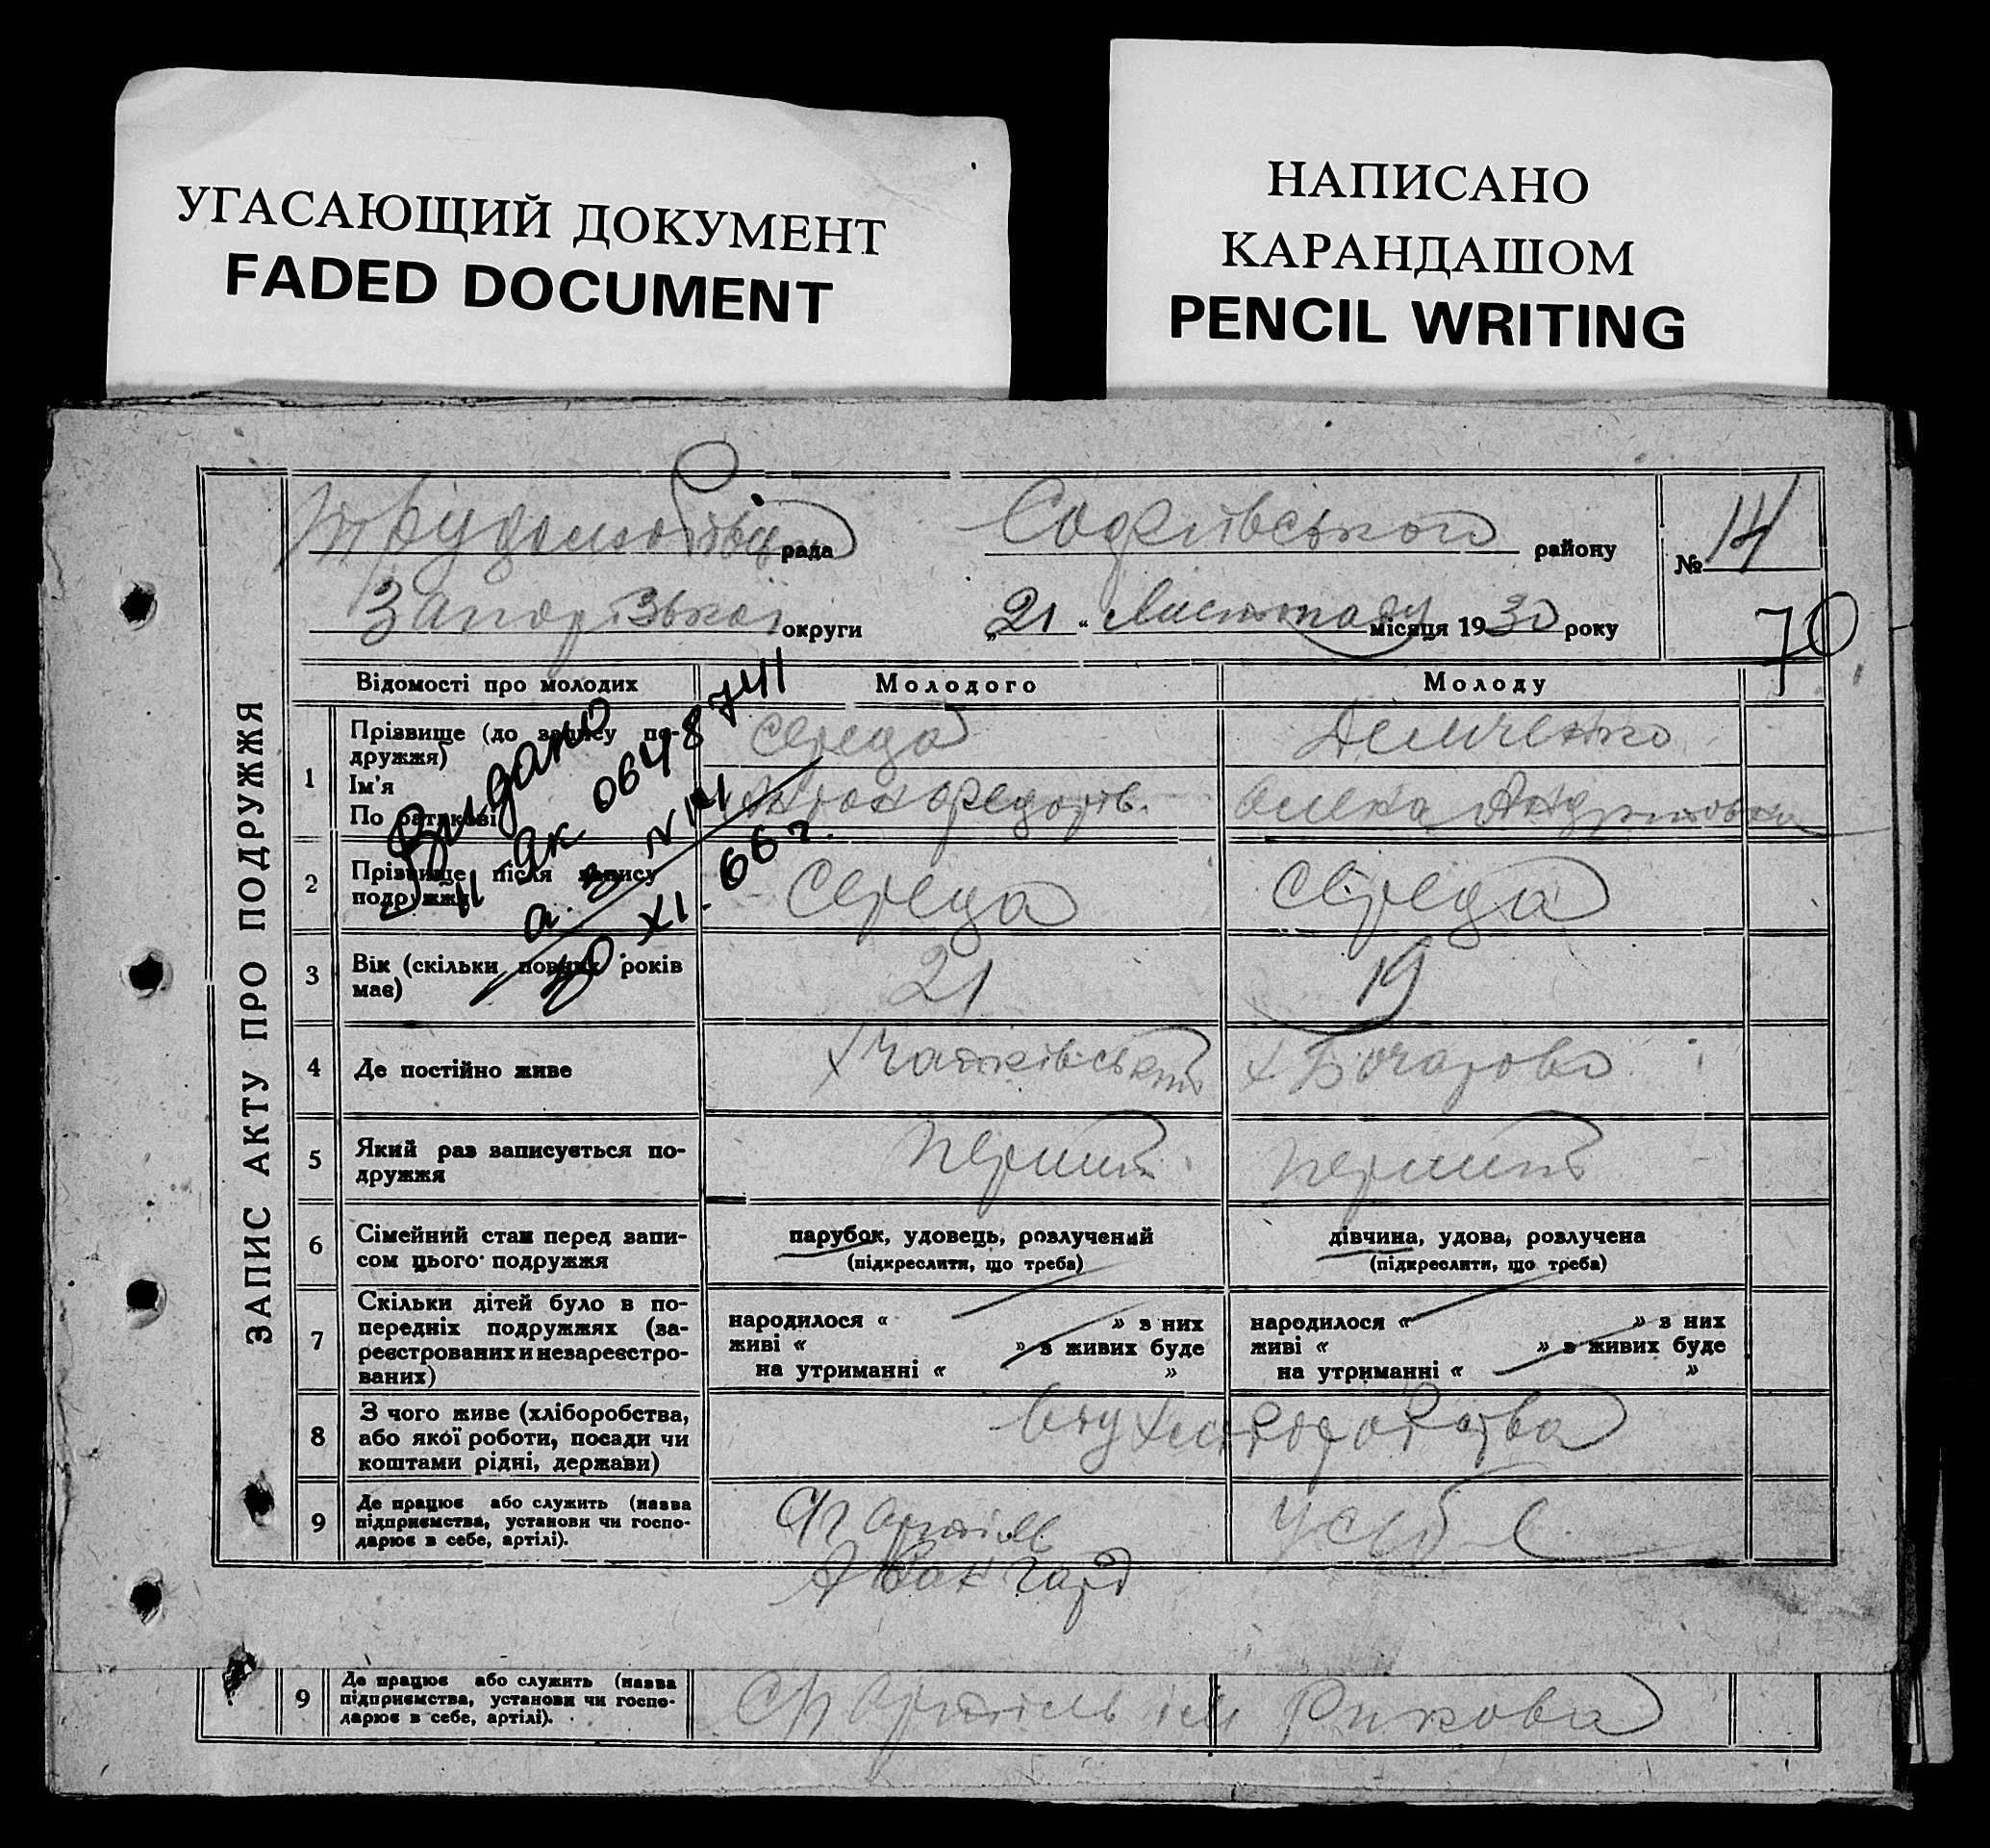 УГАСАЮЩИЙ ДОКУМЕНТ
FADED DOCUMENT
НАПИСАНО
КАРАНДАШОМ
PENCIL WRITING
ЗАПИС АКТУ ПРО ПОДРУЖЖЯ
рада Софіївського району № 14
Запорізької округи „21“ Листопаду місяця 1930 року
70
Відомості про молодих Молодого Молоду
1 Прізвище (до запису по-
дружжя)
Ім'я
По батькові
Середа Демченко
Федорів. Олена Андріївна
Видано
ЯК 0648741
а. з N 14
10. XI. 66 г.
2 Прізвище після запису
подружжя
Середа Середа
3 Вік (скільки повних років
має)
21 19
4 Де постійно живе
х Бочарово
5 Який раз записується по-
дружжя
перший перший
6 Сімейний стан перед запи-
сом цього подружжя
парубок, удовець, розлучений
(підкреслити, що треба)
дівчина, удова, розлучена
(підкреслити, що треба)
7 Скільки дітей було в по-
передніх подружжях (за-
реєстрованих и незареєстро-
ваних)
народилося « » з них
живі « » з живих буде
на утриманні « »
народилося « » з них
живі « » з живих буде
на утриманні « »
8 З чого живе (хліборобства,
або якої роботи, посади чи
коштами рідні, держави)
9 Де працює або служить (назва
підприємства, установи чи госпо-
дарює в себе, артілі).
С/г артіль
Авангард
У себе
9 Де працює або служить (назва
підприємства, установи чи госпо-
дарює в себе, артілі).
С/г Артіль ім Рикова